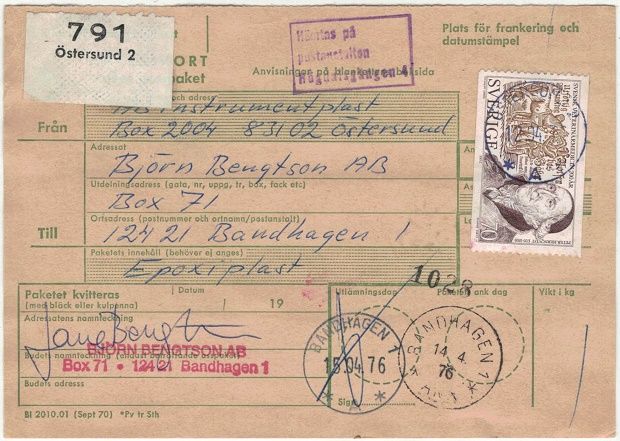 791
Östersund 2
Hämtas på
postanstalten
Plats för frankering och
datumstämpel
ORT
paket
Anvisningar på blankettens baksida
AB Instrumentplast
Från
Box 2004 83102 Östersund
Adressat
Björn Bengtson AB
Utdelningsadress (gata, nr, uppg, tr, box, fack etc)
Box 71
Ortsadress (postnummer och ortnamn/postanstalt)
Till
12421 Bandhagen 1
Paketets innehåll (behöver ej anges)
Epoxiplast
SVERIGE
1028
Paketet kvitteras
(med bläck eller kulpenna)
Datum
/ 19
Utlämningsdag
Paketets ank dag
Vikt i kg
Adressatens namnteckning
BJÖRN BENGTSON AB
Box 71 • 124 21 Bandhagen 1
Budets adress
Sign
BANDHAGEN 1
15.04.76
* A *
BANDHAGEN 1
14.4.
76
ANK
BI 2010.01 (Sept 70) *Pv tr Sth